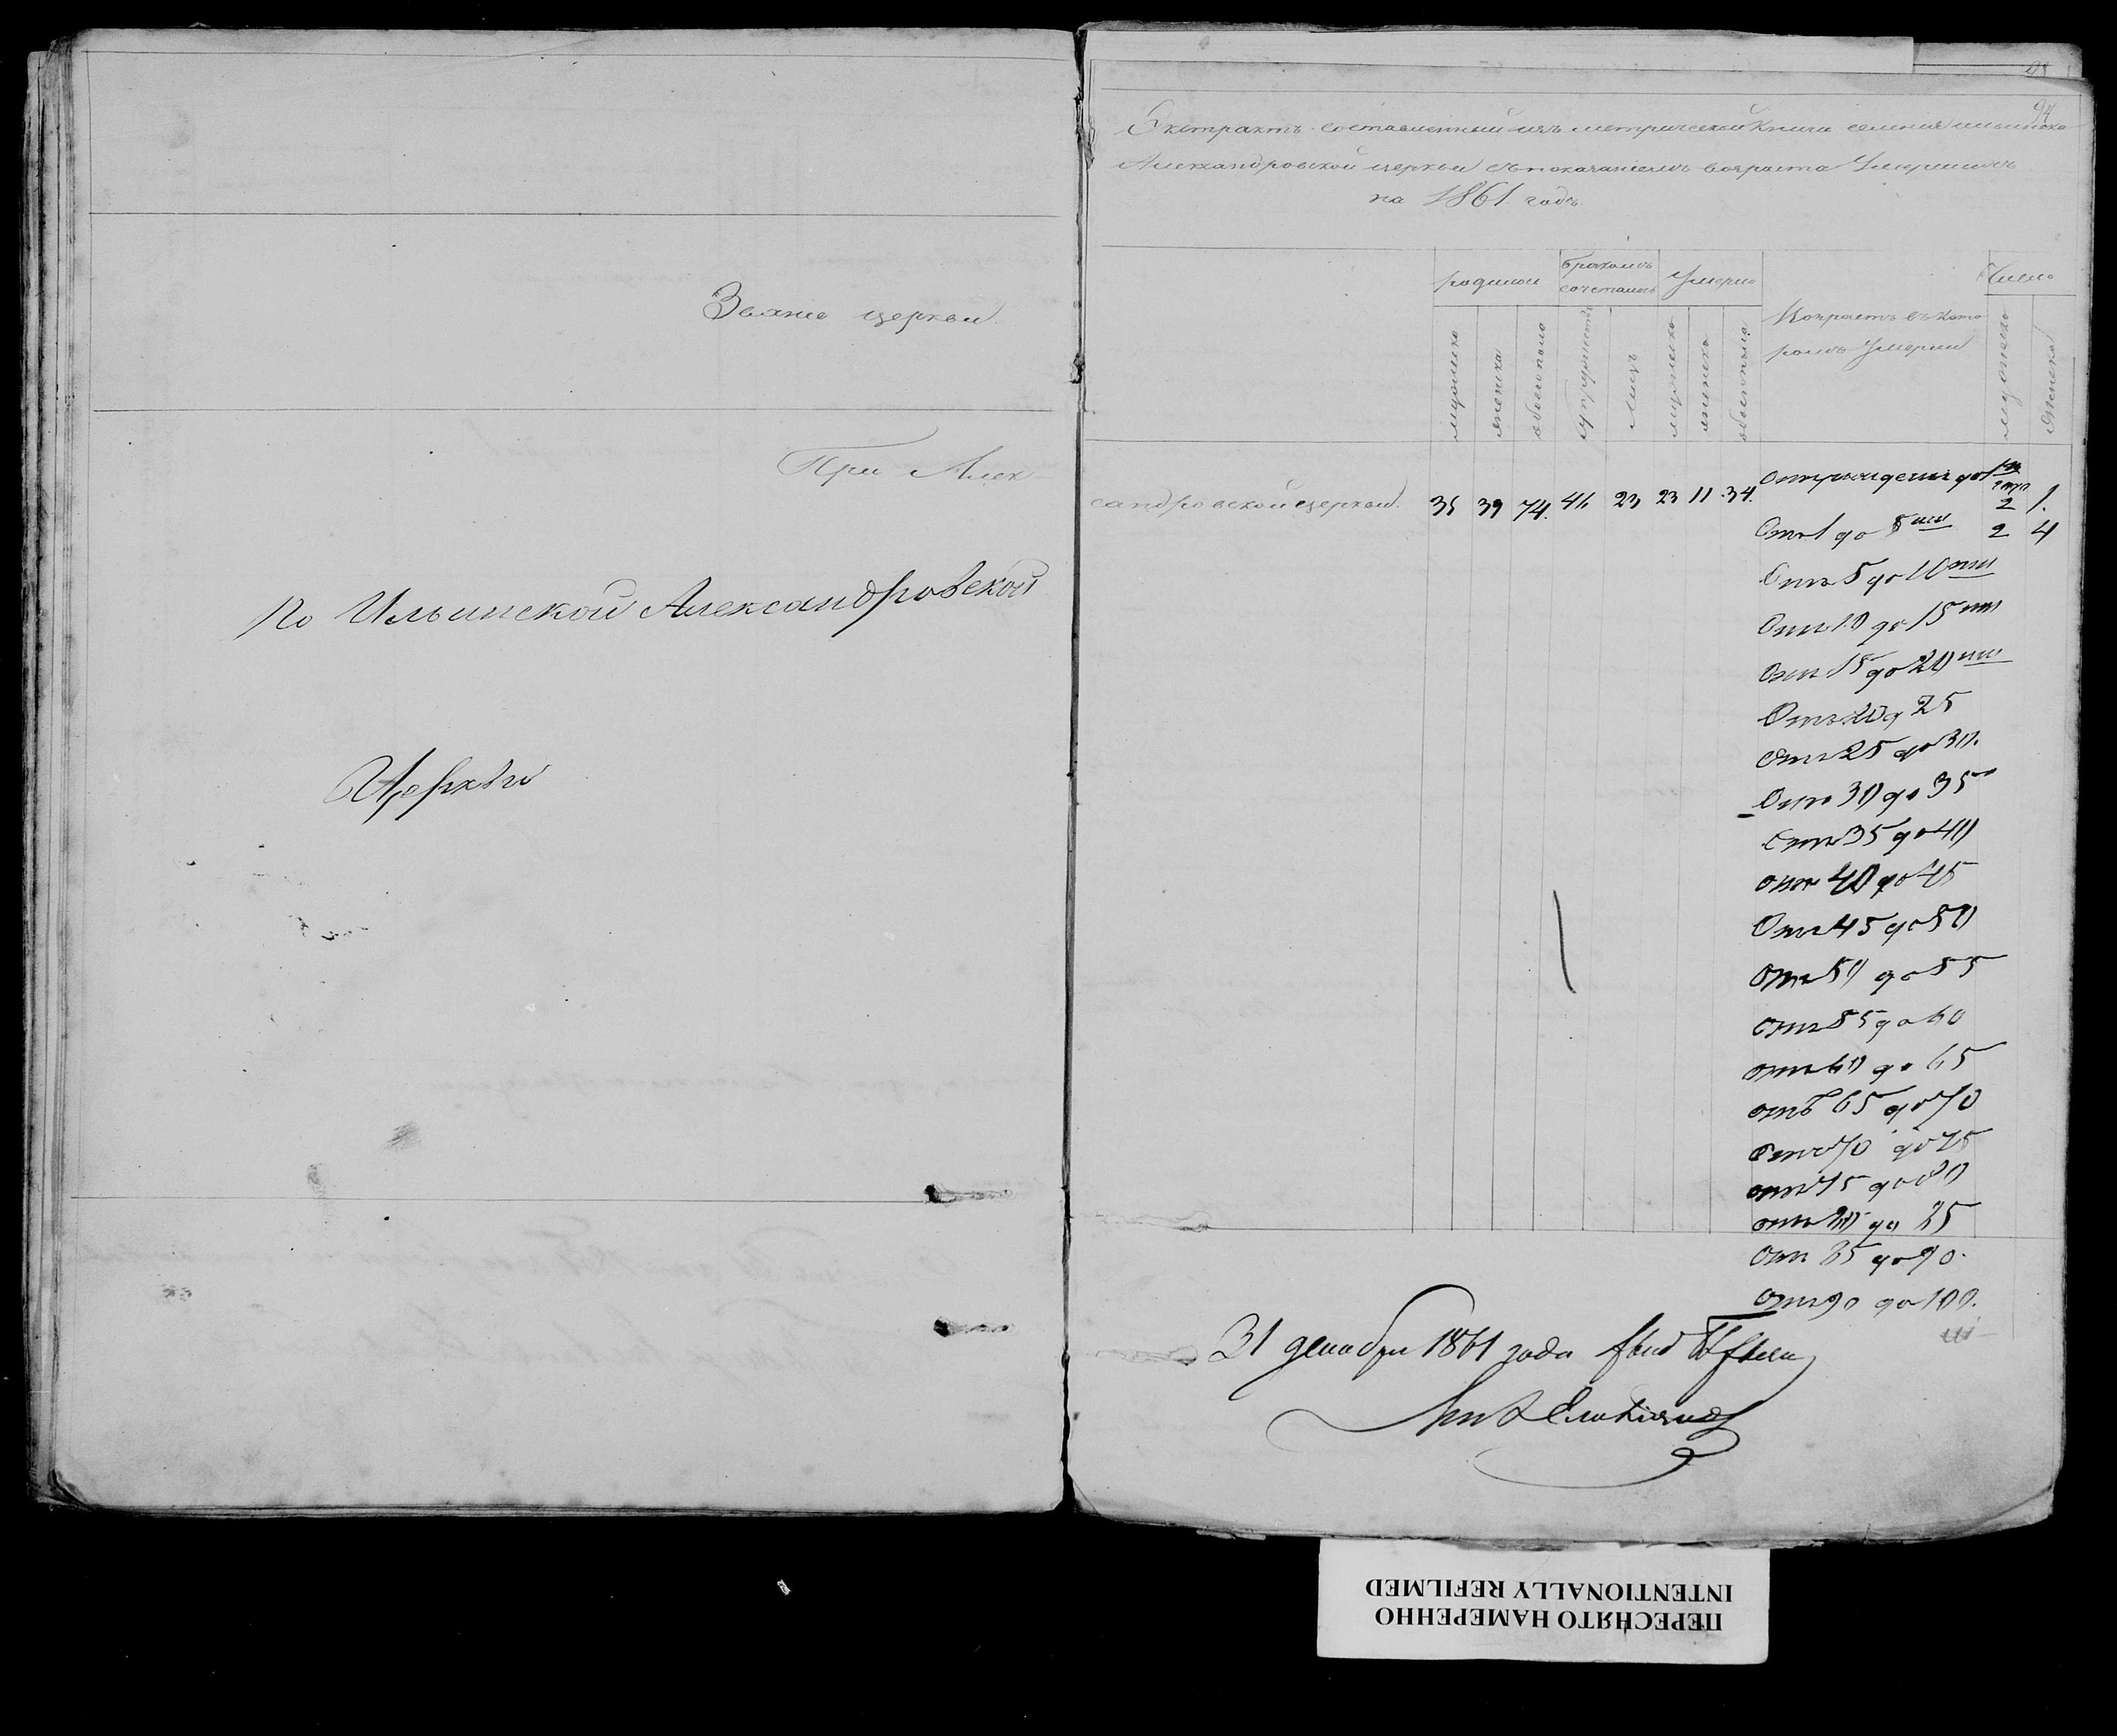 Звание церкви.
При Алек
По Ильинской Александровской
Церкви
94
Екстрактъ составленный изъ метрической книги селения
Александровской церкви съ показаниемъ возраста Умершихъ
на 1861 годъ.
родилось
бракомъ сочеталось
Умерло
Возрастъ въ кото
ромъ Умерли
Число
мужеска
женска
обоего пола
супружествъ
лицъ
мужеска
женска
обоего пола
мужеска
женска
сандровской церкви. 35 39 74. 46 23 23 11 34.
От рождения до 2 1.
Отъ 1 до 5 2 4
Отъ 5 до 10
Отъ 10 до 15
Отъ 15 до 20
Отъ 20 д 25
Отъ 25 до 30.
Отъ 30 до 35
Отъ 35 до 40
отъ 40 до 45
Отъ 45 до 50
Отъ 50 до 55
Отъ 55 до 60
отъ 60 до 65
отъ 65 до 70
Отъ 70 до 75
отъ 75 до 80
отъ 80 до 85
Отъ 85 до 90.
Отъ 90 до 100.
31 декабря 1861 года
ПЕРЕСНЯТО НАМЕРЕННО
INTENTIONALLY REFILMED